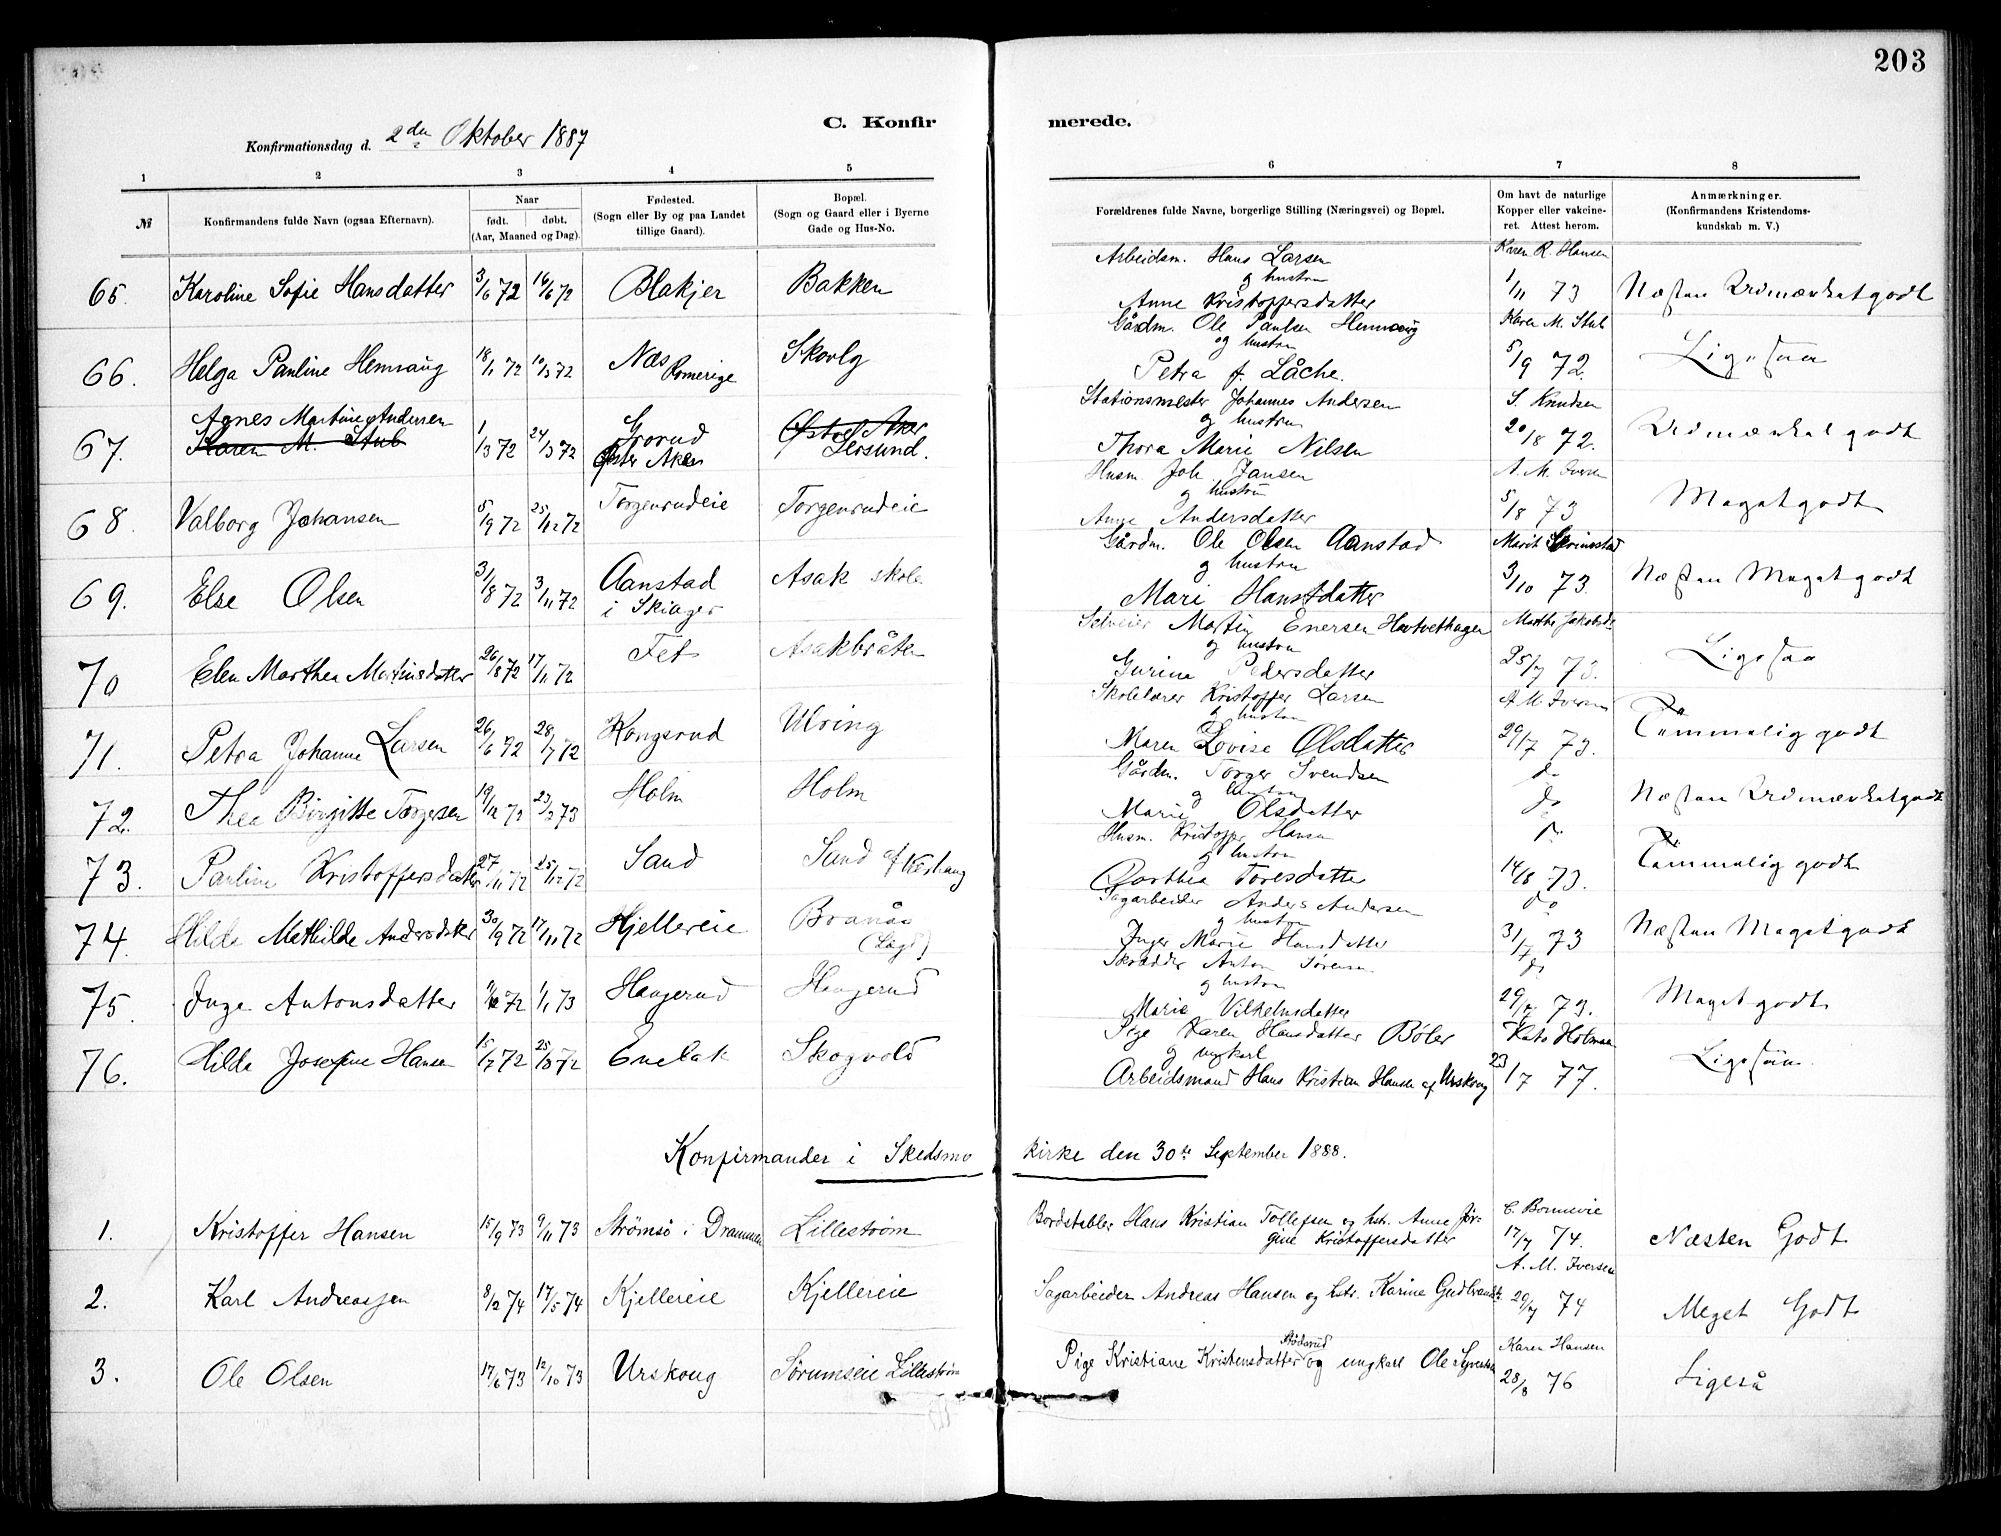 203
C. Konfirmerede.
Konfirmationsdag d. 2den Oktober 1887
1 2 3 4 5 6 7 8
№ Konfirmandens fulde Navn (ogsaa Efternavn). Naar født. døbt. (Aar, Maaned og Dag). Fødested. (Sogn eller By og paa Landet tillige Gaard). Bopæl. (Sogn og Gaard eller i Byerne Gade og Hus-No. Forældrenes fulde Navne, borgerlige Stilling (Næringsvei) og Bopæl. Om havt de naturlige Kopper eller vakcineret. Attest herom. Anmærkninger. (Konfirmandens Kristendomskundskab m. V.)
65. Karoline Sofie Hansdatter 3/6 72 16/6 72 Blakjer Bakken Arbeidsm. Hans Larsen og hustru Anne Kristoffersdatter Karen R. Hansen 1/11 73 Næsten Udmærket godt
66. Helga Pauline Hemsaug 18/1 72 10/3 72 Næs Romerige Skovlg Gårdm. Ole Paulsen Hemsaug og hustru Petra f. Låche. Karen M. Stub 5/9 72. Ligesaa
67. Agnes Martine Andersen Karen M. Stub 1/3 72 24/3 72 Grorud Øster Aker Øster Aker Leirsund. Stationsmester Johannes Andersen og hustru Thora Marie Nilsen S. Knudsen 20/8 72. Udmærket godt
68. Valborg Johansen 5/9 72 25/12 72 Torgenrudeie Torgenrudeie Husm Joh. Jansen og hustru Anne Andersdatter A. M. Iversen 5/8 73 Meget godt
69. Else Olsen 31/8 72 3/11 72 Aanstad i Skiager Asak skole Gårdm. Ole Olsen Aanstad og hustru Mari Hansdatter Marit Skrinestad 3/10 73. Næsten Meget godt
70 Elen Marthea Martinsdatter 26/8 72 17/11 72 Fet Asakbråten Selveier Martin Enersen Hvitvethagen og hustru Gurina Pedersdatter Marthe Jakobsd. 25/7 73. Ligesaa
71. Petra Johanne Larsen 26/6 72 28/7 72 Kongsrud Ulving Skolelærer Kristoffer Larsen og hustru Maren Lovise Olsdatter A M Iversen 29/7 73. Temmelig godt
72. Thea Birgitte Torgersen 19/12 72 23/2 73 Holm Holm Gårdm. Torger Svendsen og hustru Marie Olsdatter do do Næsten Udmærket godt
73. Pauline Kristoffersdatter 27/11 72 25/12 72 Sand Sand Husm. Kristoffer Hansen og hustru Dorthea Toresdatter do 14/8 73. Temmelig godt
74. Hilda Mathilde Andersdatter 30/9 72 17/11 72 Hjellereie Branås Sagarbeider Anders Andersen og hustru Inger Marie Hansdatter do 31/7 73 Næsten Meget godt
75. Inga Antonsdatter 72 1/1 73 Haugerud Haugerud Skrædder Anton Sørensen og hustru Marie Vilhelmsdatter do 29/7 73. Meget godt
76. Hilda Josefine Hansen 15/7 72 25/8 72 Enebak Skogvold Pige Karen Hansdatter Bøler og ungkarl Arbeidsmand Hans Kristian Hansen af Urskoug Kato Holmsen 23/7 77. Ligesaa.
Konfirmander i Skedsmo kirke den 30te September 1888.
1. Kristoffer Hansen 15/9 73 9/11 73 Strømsø i Drammen Lillestrøm Bordstabler Hans Kristian Tollefsen og hst. Anne Jørgine Kristoffersdatter C. Bonnevie 17/7 74. Næsten Godt
2. Karl Andreassen 8/2 74 17/5 74 Kjellereie Kjellereie Sagarbeider Andreas Hansen og hst. Karine Gudbrandsd. A. M. Iversen 29/7 74 Meget Godt
3. Ole Olsen 17/6 73 12/10 73 Urskoug Sørumseie Lillestrøm Pige Kristiane Kristensdatter og ungkarl Ole Syversen Karen Hansen 28/8 76 Ligeså